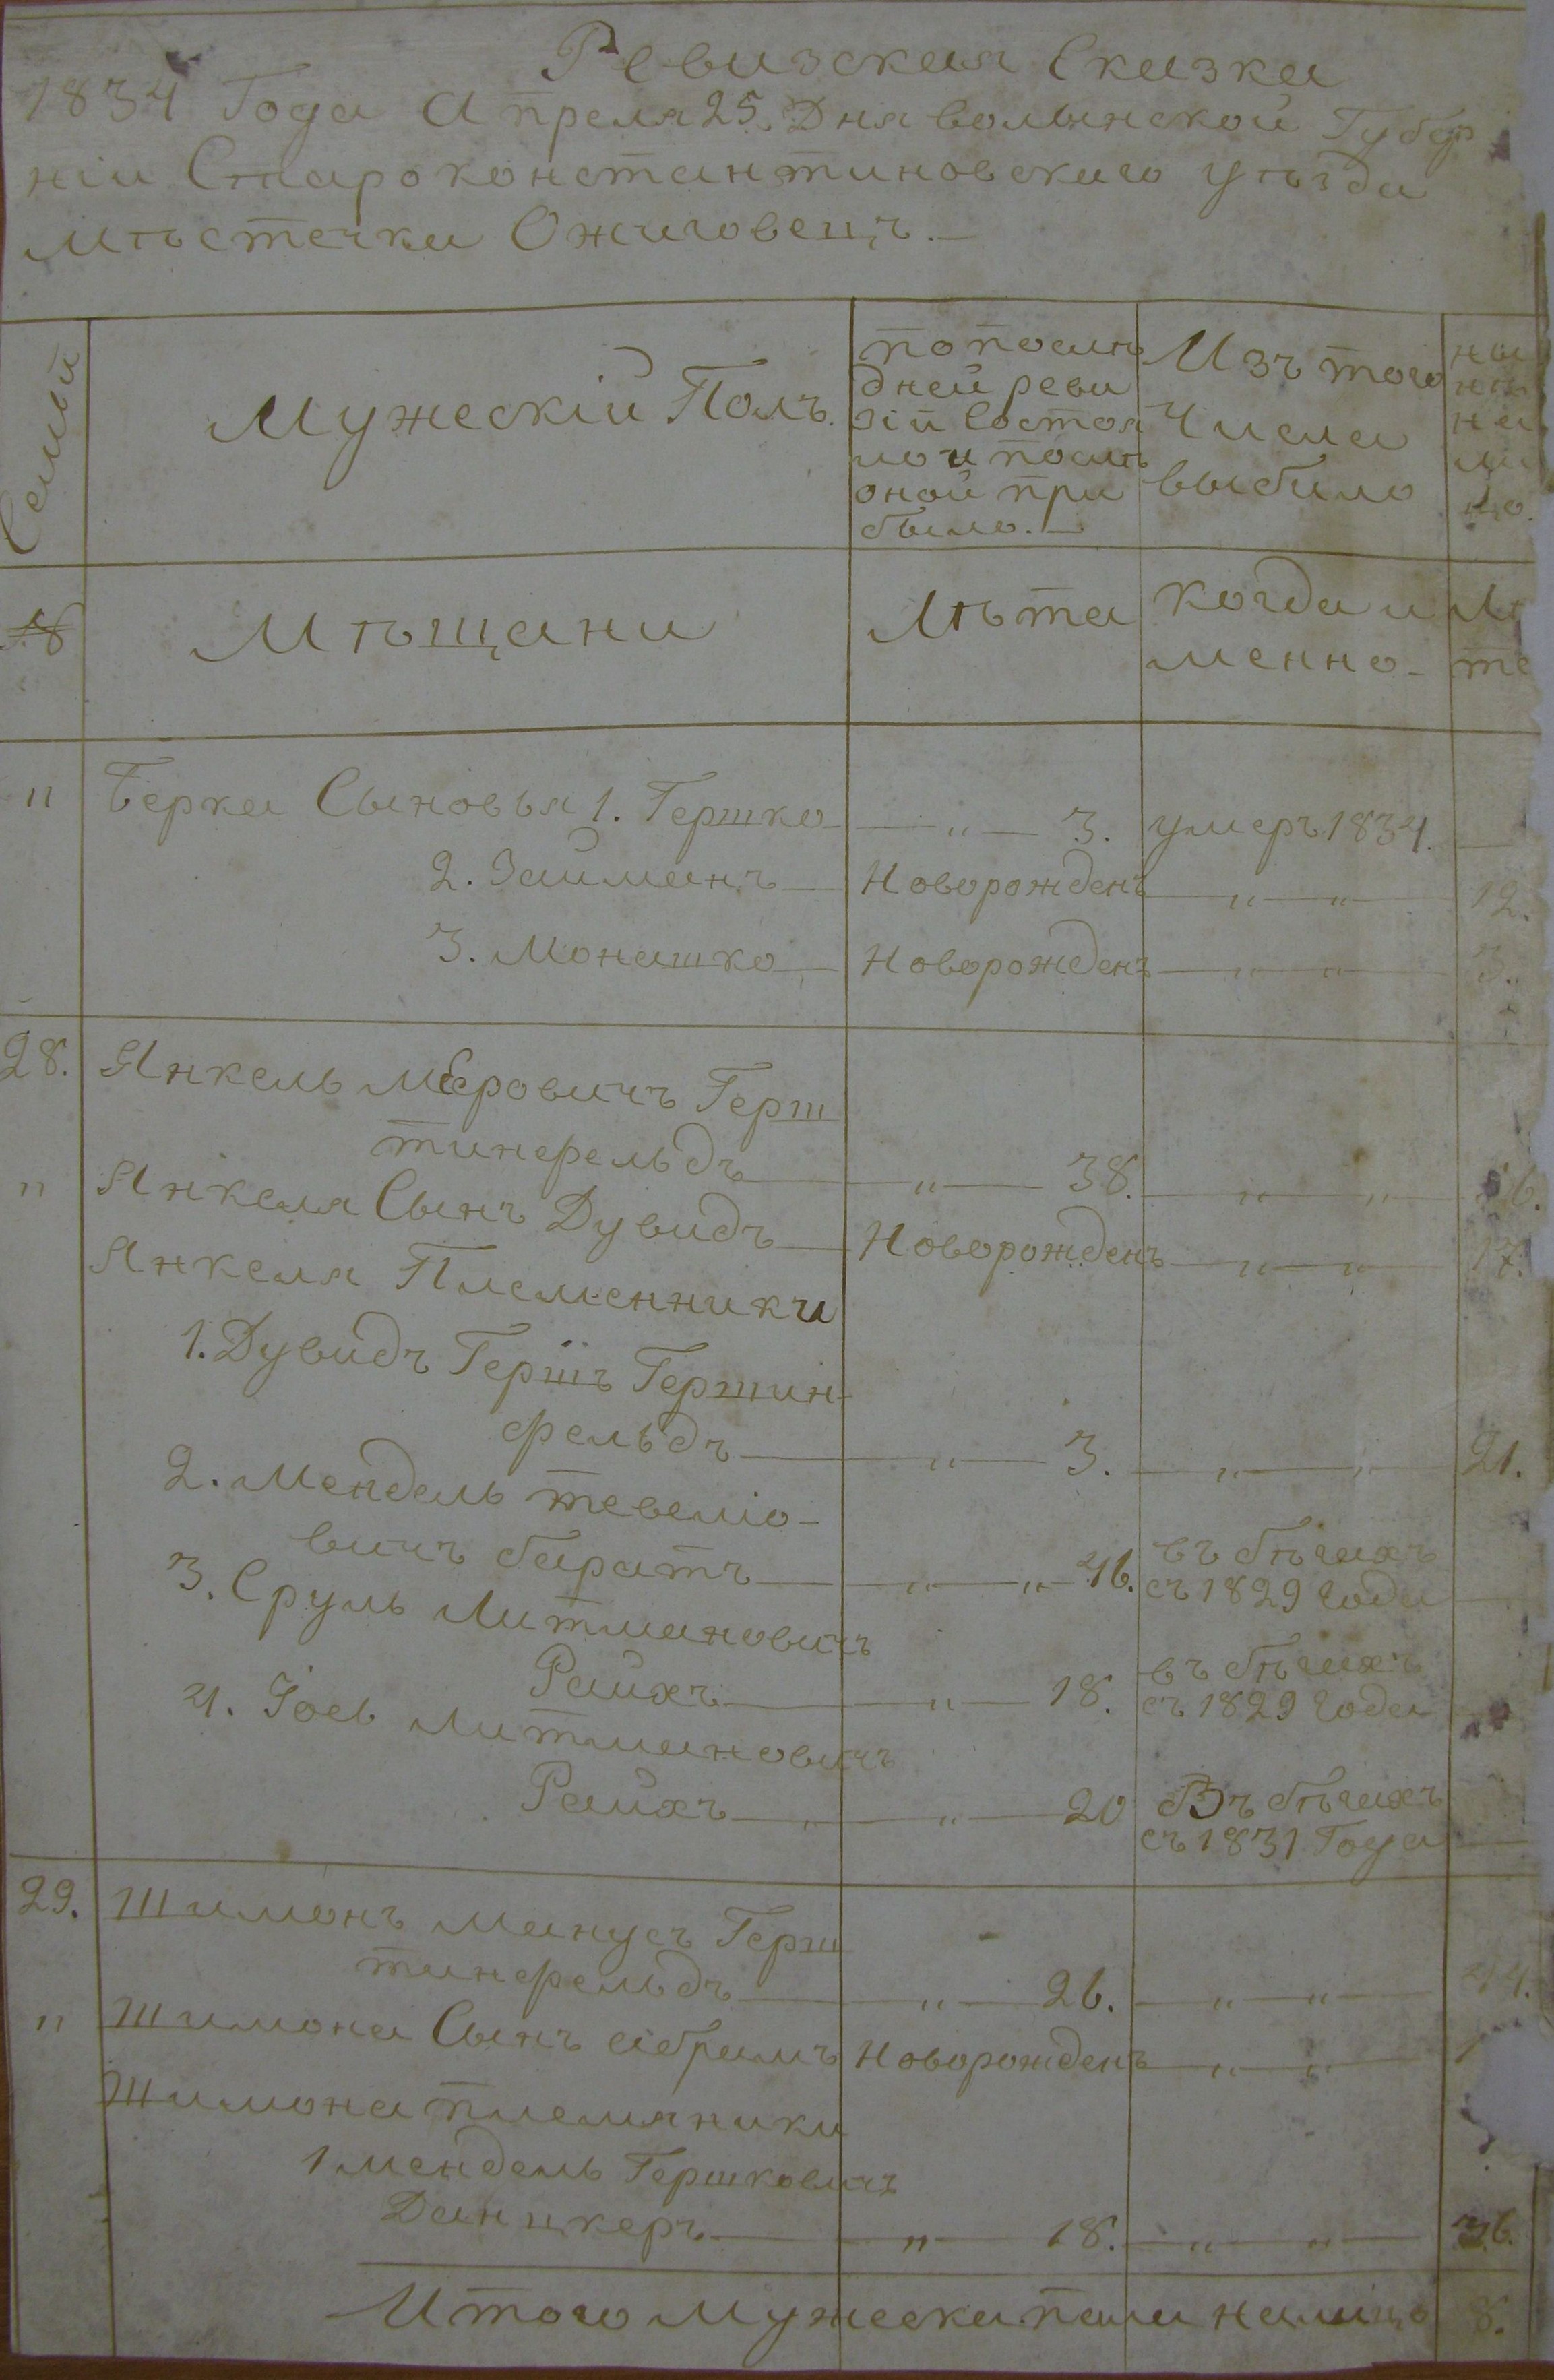 Ревизская Сказка
1834 Года Апреля 25. Дня Волынской Губер
ніи Староконстантиновскаго уѣзда
мѣстечка Ожиговецъ.—
Семьи
Мужескій Полъ.
по послѣ
дней реви
зій состоя
ло и послѣ
оной при
было.—
Изъ того
Числа
выбило
ны
нѣ
на
ли
цо.
№
Мѣщани
Лѣта
когда и
менно-
Лѣ
те
" Берка Сыновья 1. Гершко — " — 3. умеръ 1834.
2. Займанъ — Новорожденъ — " — " — 12.
3. Монашко — Новорожденъ — " — " — 3.
28. Янкель Мeровичъ Герш
тинфельдъ — " — 38. — " — "
" Янкеля Сынъ Дувидъ — Новорожденъ — " — " — 17.
Янкеля Племенники
1. Дувидъ Гершъ Гершин-
фельдъ — " — 3. — " — " — 21.
2. Мендель Тевеліо-
вичъ баратъ — " — " 46. въ бѣгахъ
съ 1829 года
3. Сруль Литмановичъ
Райхъ — " — 18. въ бѣгахъ
съ 1829 года
4. Іосъ Литмановичъ
Райхъ — " — " — 20 Въ бѣгахъ
съ 1831 Года
29. Шимонъ Манусъ Герш
тинфельдъ — " — 26. — " — " — 44.
" Шимона Сынъ абрамъ Новорожденъ — " — "
Шимона племяники
1 Мендель Гершковичъ
Данцкеръ — " — 18. — " — " — 36.
Итого мужеска пола налицо 8.